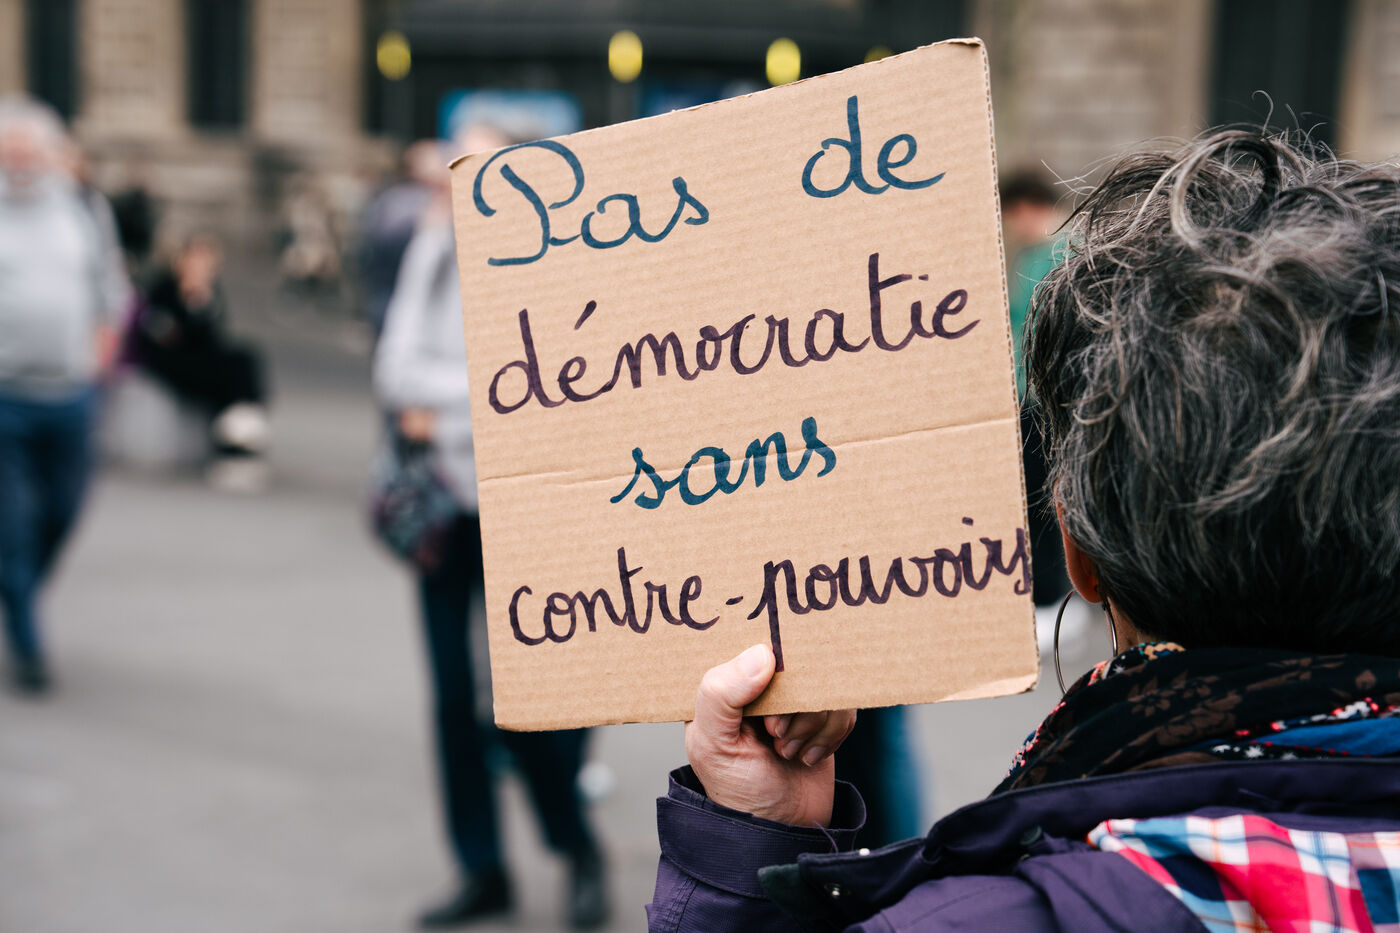 Pas de
démocratie
sans
contre-pouvoirs